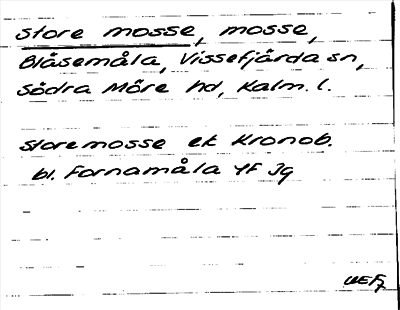 store mosse, mosse,
Blåsemåla, Vissefjärda sn,
Södra Möre hd, Kalm. l.
storemosse ek Kronob.
bl. Fornamåla 4F 3g